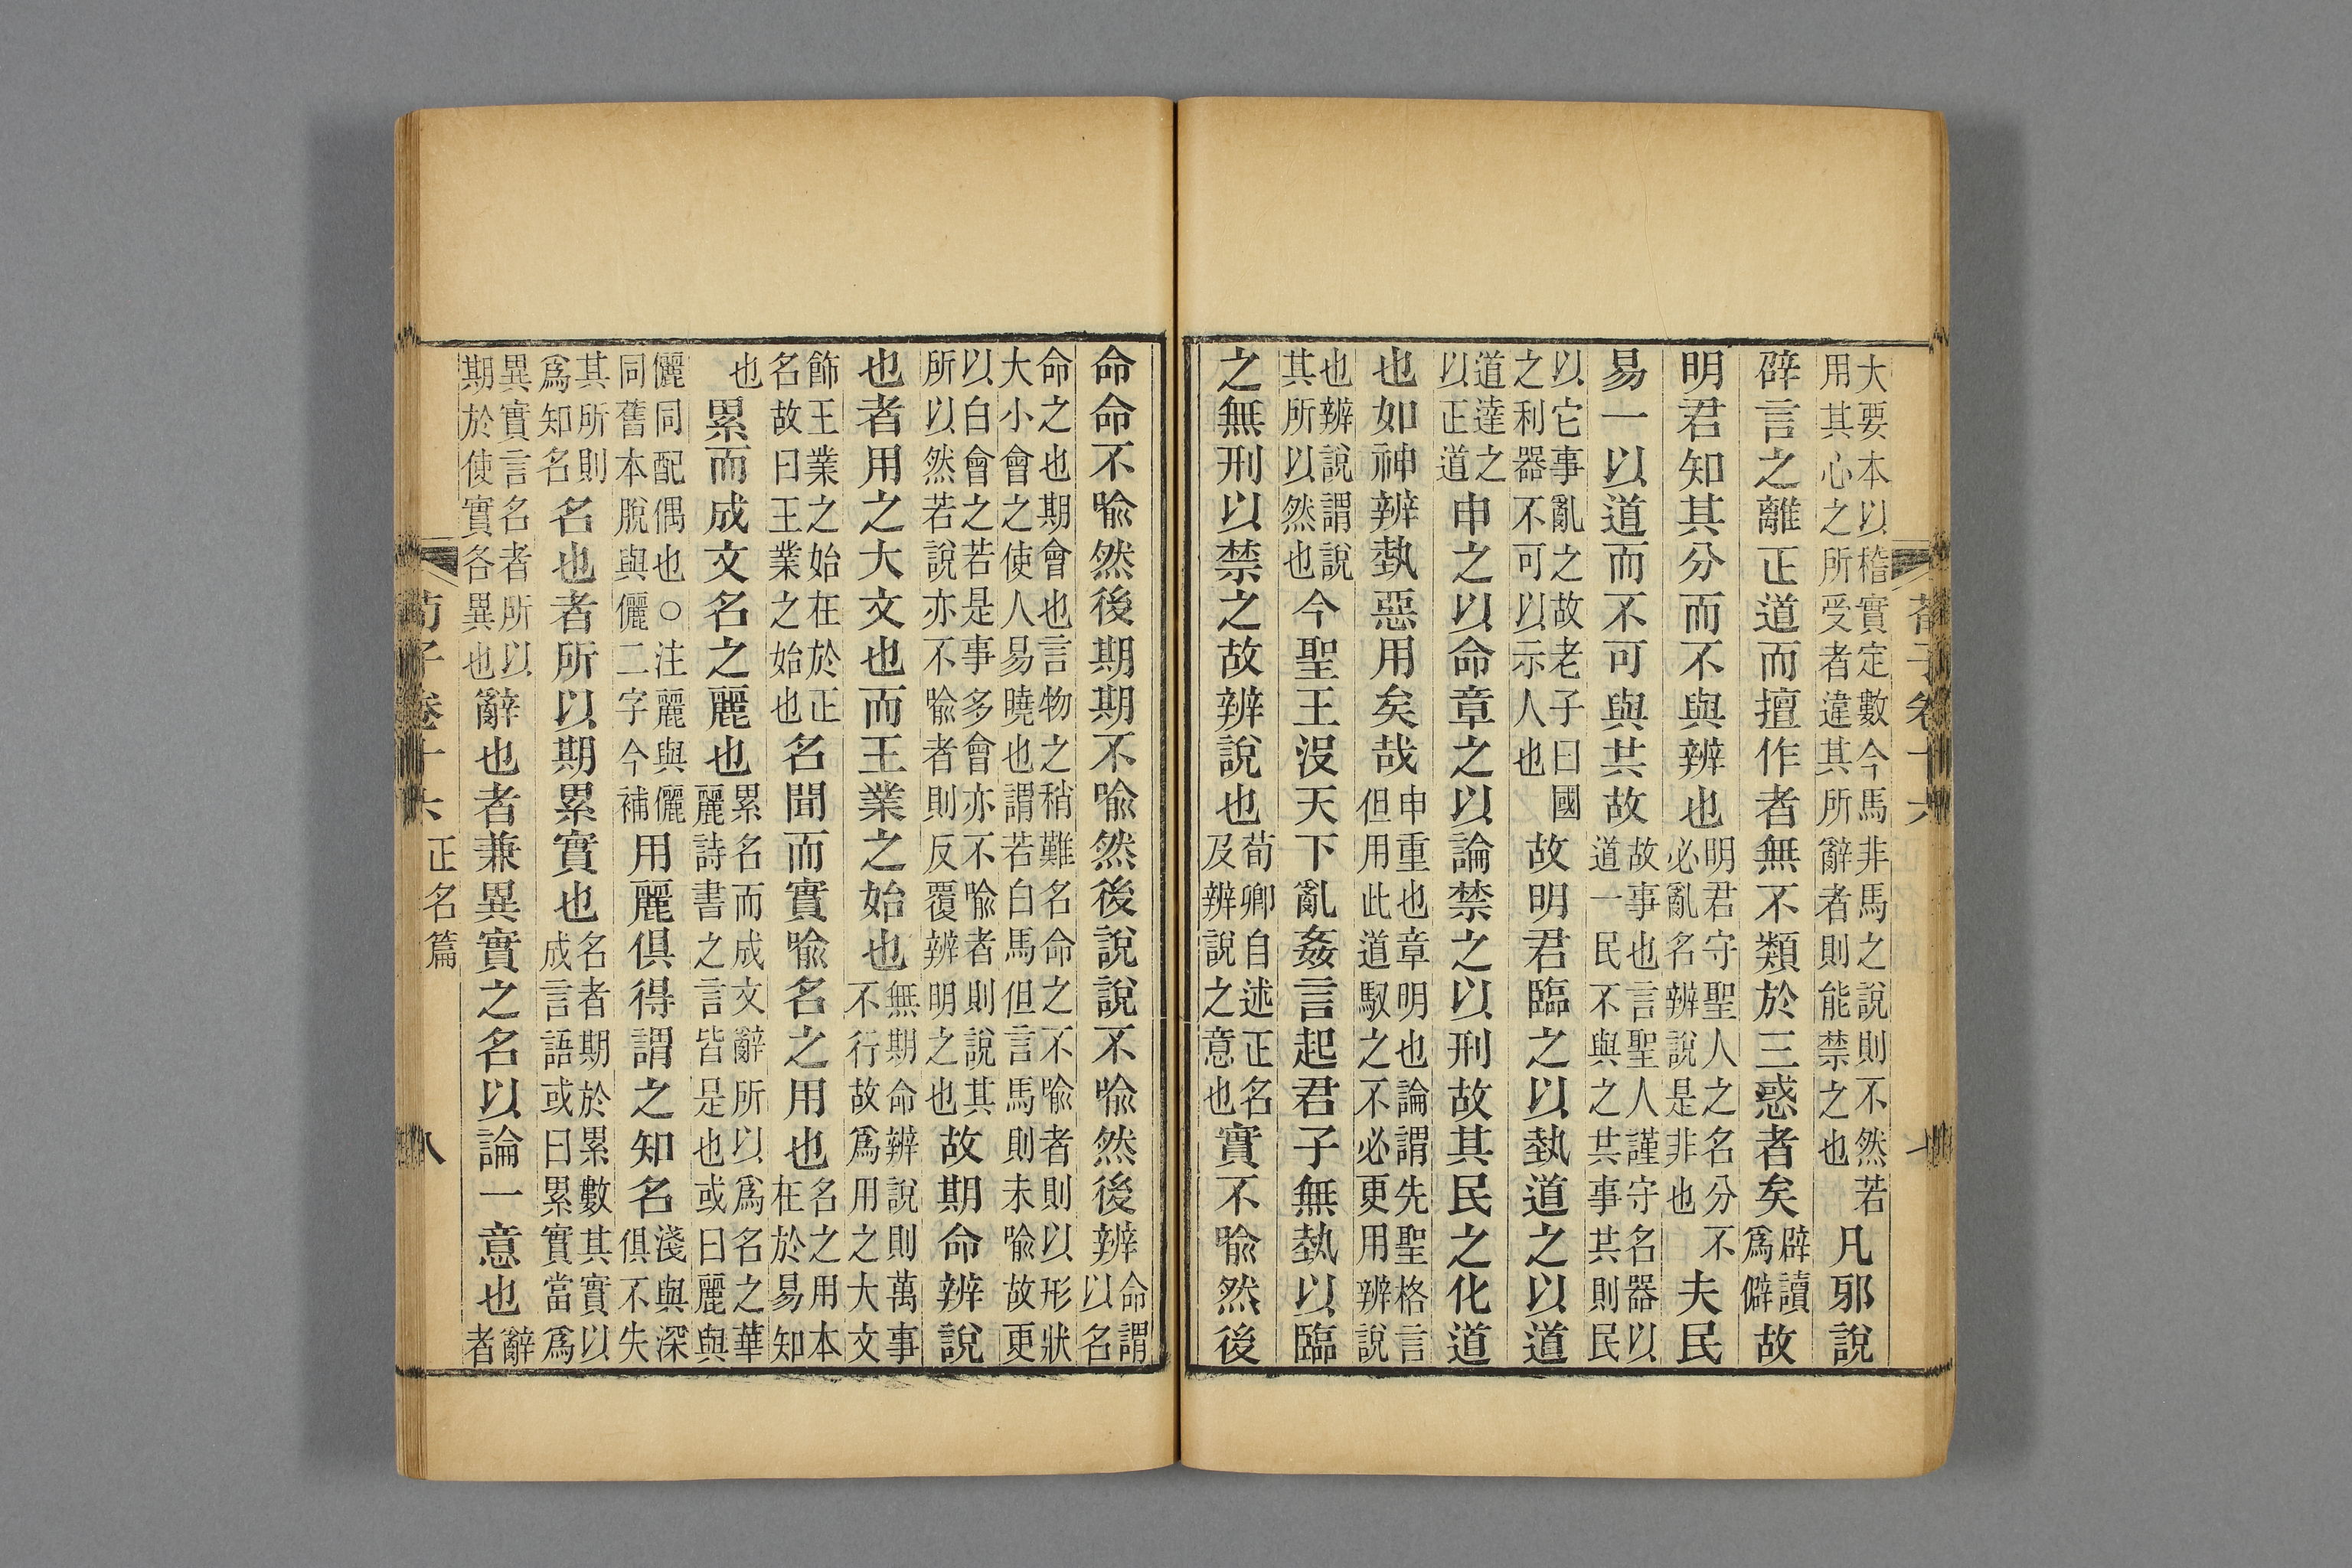 荀子卷十六
大要本以稽實定數今馬非馬之說則不然若用其心之所受者違其所辭者則能禁之也凡邪說
辟言之離正道而擅作者無不類於三惑者矣辟讀爲僻故
明君知其分而不與辨也明君守聖人之名分不必亂名辨說是非也夫民
易一以道而不可與共故故事也言聖人謹守名器以道一民不與之共事共則民
以它事亂之故老子曰國之利器不可以示人也故明君臨之以埶道之以道
道達之以正道申之以命章之以論禁之以刑故其民之化道
也如神辨埶惡用矣哉申重也章明也論謂先聖格言但用此道馭之不必更用辨說
也辨說謂說其所以然也今聖王沒天下亂姦言起君子無埶以臨
之無刑以禁之故辨說也荀卿自述正名及辨說之意也實不喻然後
命命不喻然後期期不喻然後說說不喻然後辨命謂以名
命之也期會也言物之稍難名命之不喻者則以形狀大小會之使人易曉也謂若白馬但言馬則未喻故更
以白會之若是事多會亦不喻者則說其所以然若說亦不喻者則反覆辨明之也故期命辨說
也者用之大文也而王業之始也無期命辨說則萬事不行故爲用之大文
飾王業之始在於正名故曰王業之始也名聞而實喻名之用也名之用本在於易知
也累而成文名之麗也累名而成文辭所以爲名之華麗詩書之言皆是也或曰麗與
儷同配偶也○注麗與儷同舊本脫與儷二字今補用麗俱得謂之知名淺與深俱不失
其所則爲知名名也者所以期累實也名者期於累數其實以成言語或曰累實當爲
異實言名者所以期於使實各異也辭也者兼異實之名以論一意也辭者
荀子卷十六 正名篇 八